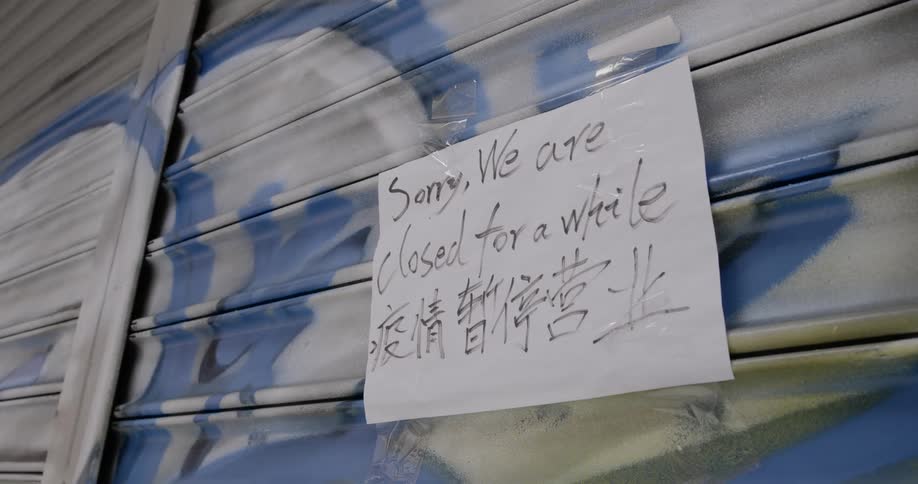 Sorry, We are
closed for a while
疫情暂停营业